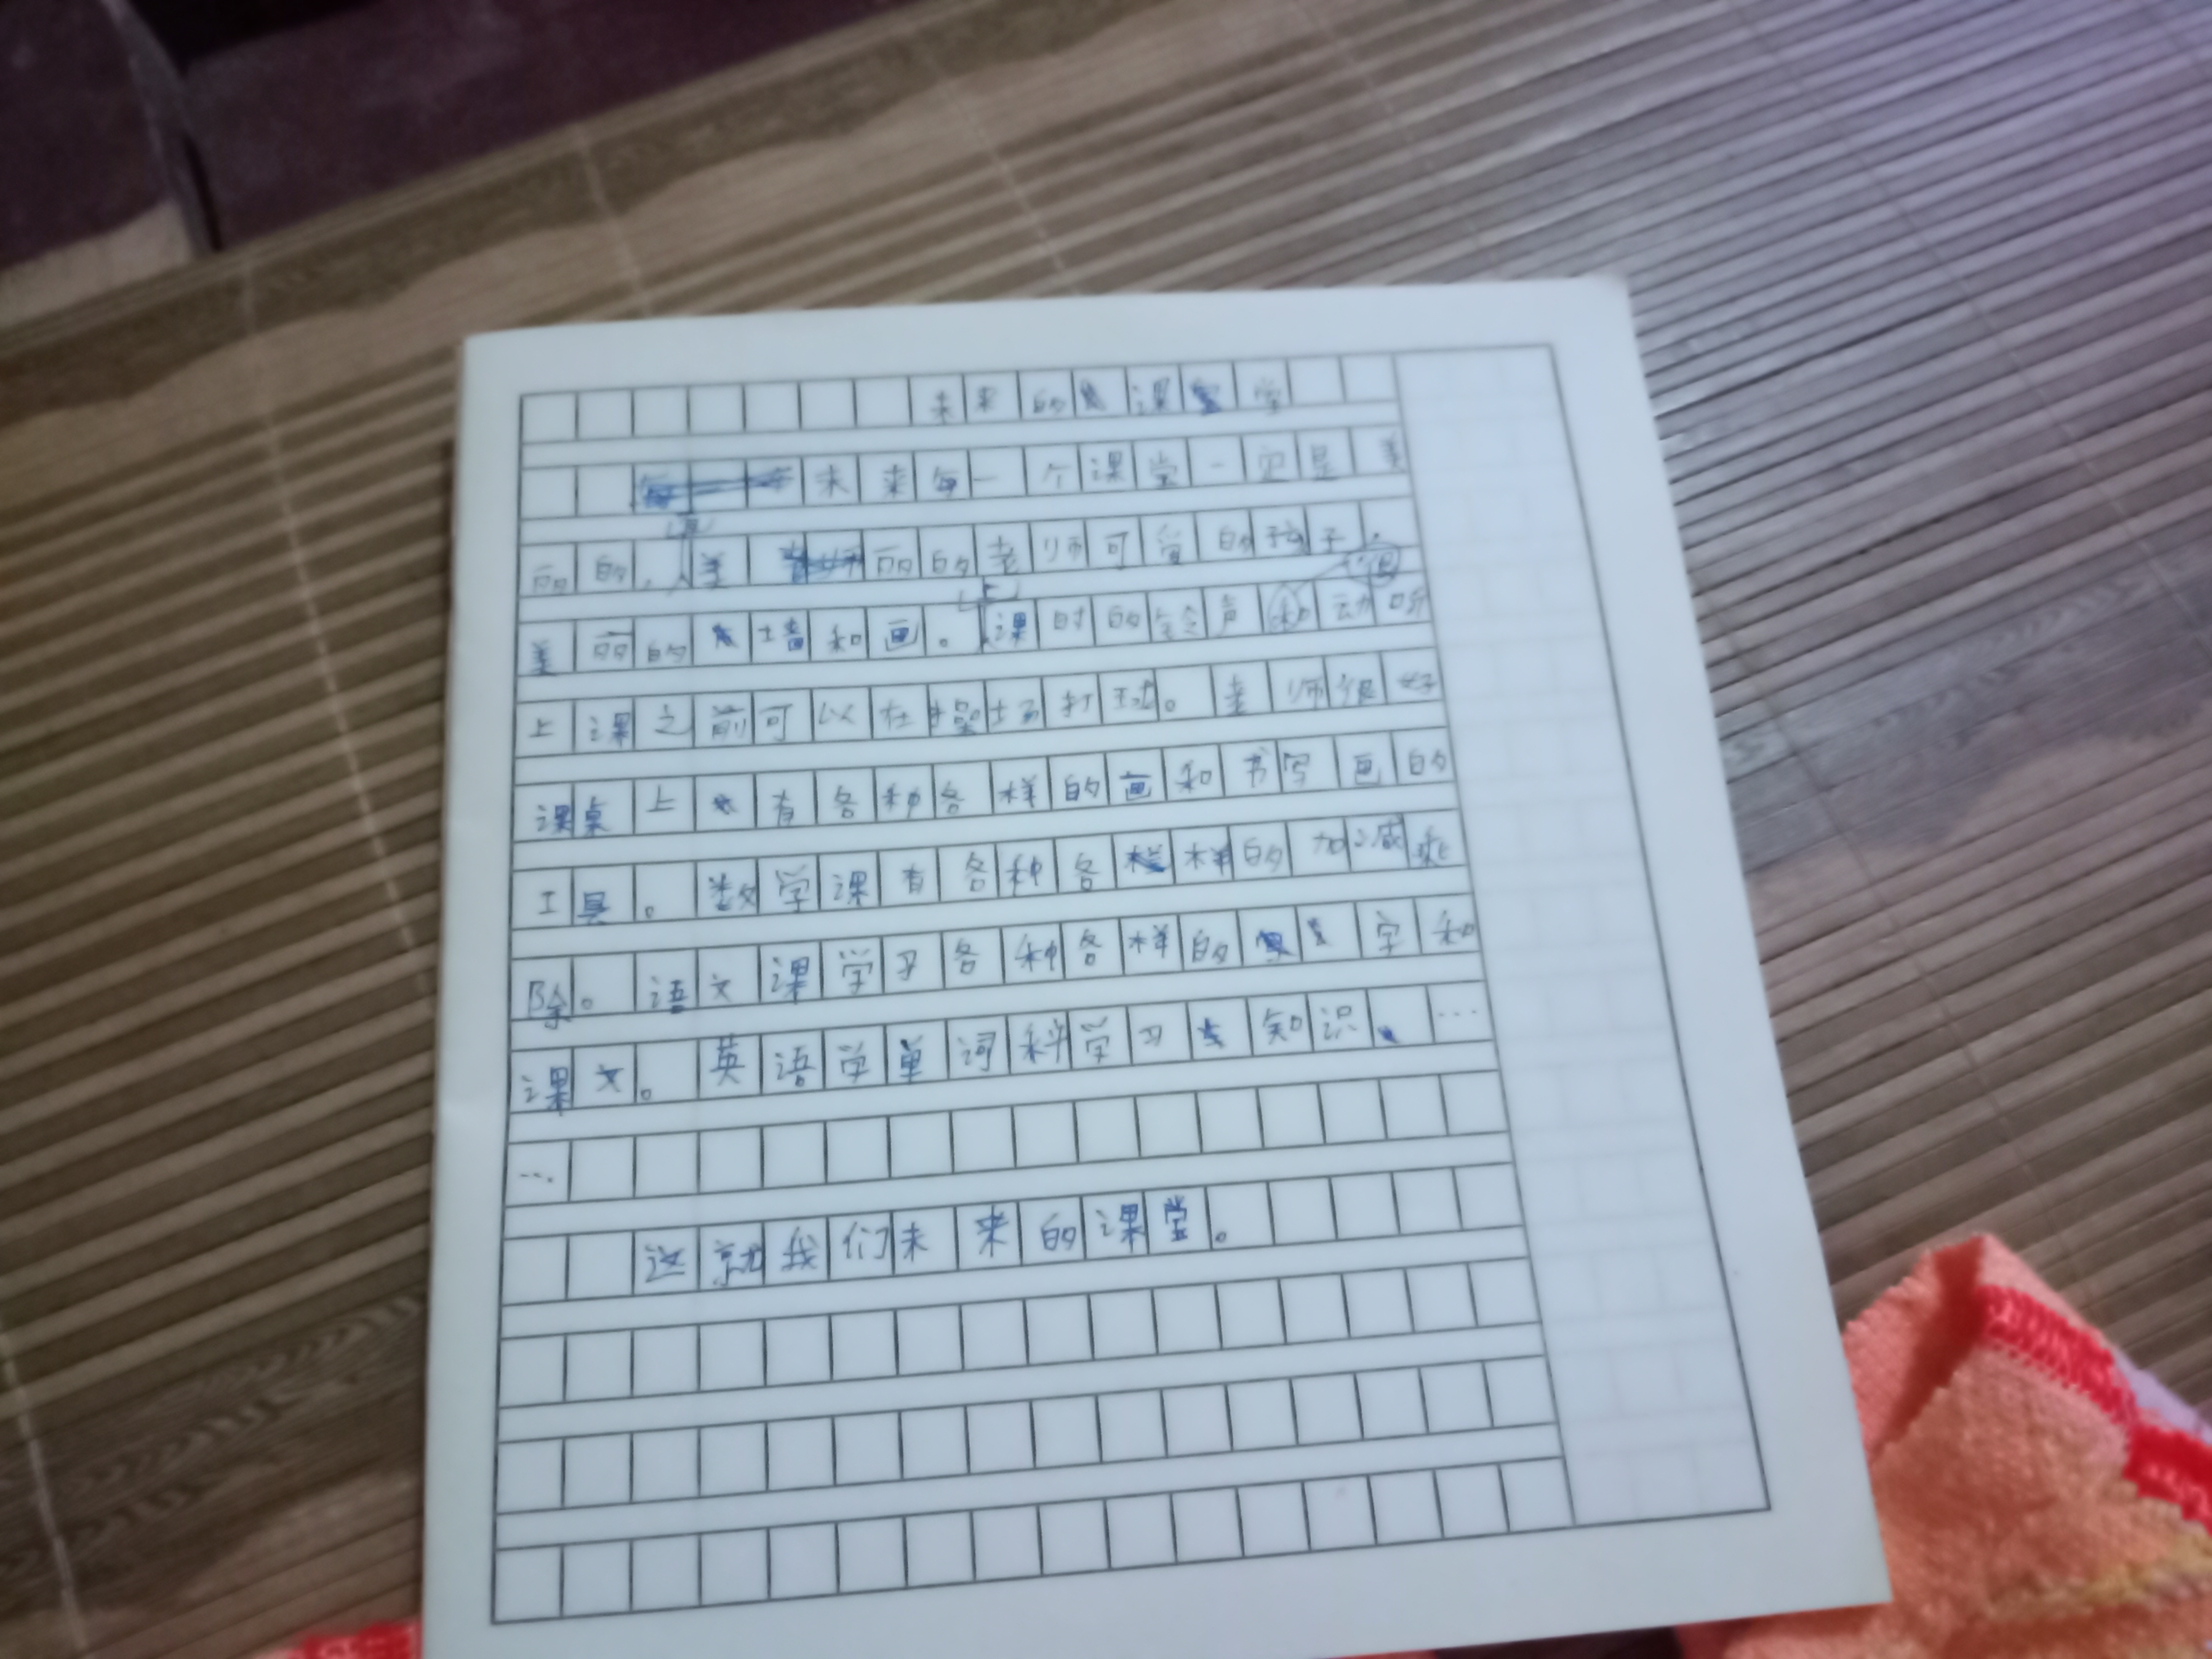 未来的课堂
未来每一个课堂一定是美
丽的,美丽的老师可爱的孩子,
美丽的墙和画。上课时的铃声很动听
上课之前可以在操场打球。老师很好
课桌上有各种各样的画和书写画的
工具。数学课有各种各样的加减乘
除。语文课学习各种各样的字和
课文。英语学单词科学习知识、…
…
这就我们未来的课堂。